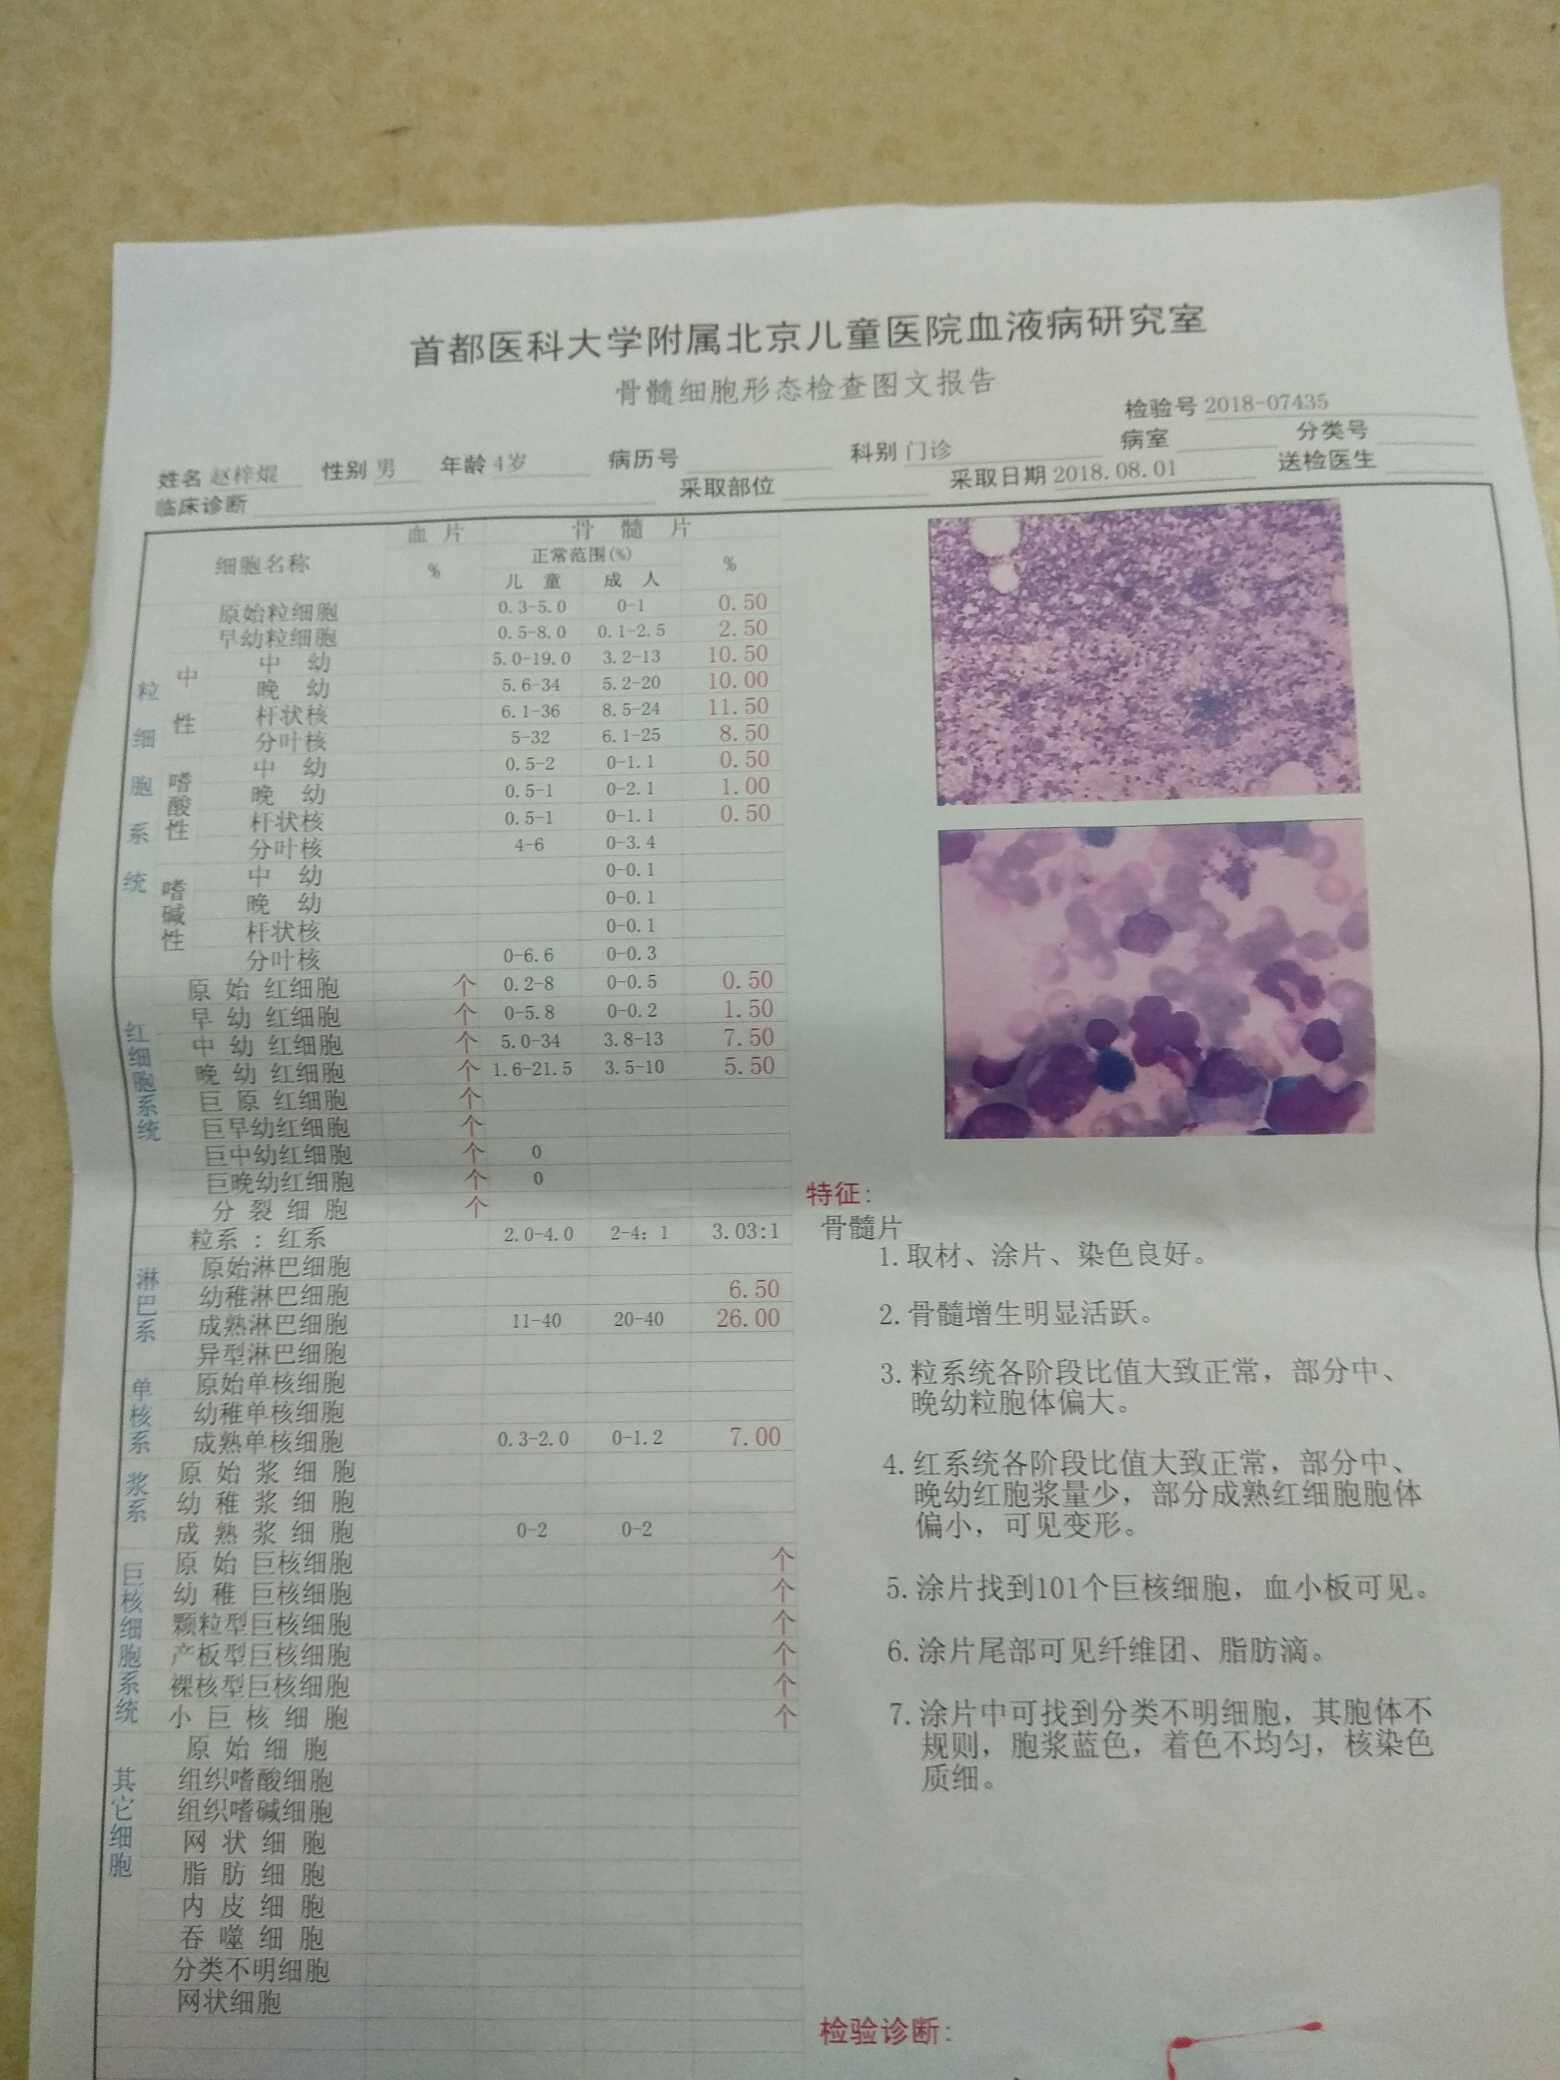 首都医科大学附属北京儿童医院血液病研究室
骨髓细胞形态检查图文报告
检验号 2018-07435
姓名 赵梓焜 性别 男 年龄 4岁 病历号 科别 门诊 病室 分类号
临床诊断 采取部位 采取日期 2018.08.01 送检医生
细胞名称 血片 骨髓片
% 正常范围(%) %
儿童 成人
粒细胞系统
原始粒细胞 0.3-5.0 0-1 0.50
早幼粒细胞 0.5-8.0 0.1-2.5 2.50
中性
中幼 5.0-19.0 3.2-13 10.50
晚幼 5.6-34 5.2-20 10.00
杆状核 6.1-36 8.5-24 11.50
分叶核 5-32 6.1-25 8.50
嗜酸性
中幼 0.5-2 0-1.1 0.50
晚幼 0.5-1 0-2.1 1.00
杆状核 0.5-1 0-1.1 0.50
分叶核 4-6 0-3.4
嗜碱性
中幼 0-0.1
晚幼 0-0.1
杆状核 0-0.1
分叶核 0-6.6 0-0.3
红细胞系统
原始红细胞 个 0.2-8 0-0.5 0.50
早幼红细胞 个 0-5.8 0-0.2 1.50
中幼红细胞 个 5.0-34 3.8-13 7.50
晚幼红细胞 个 1.6-21.5 3.5-10 5.50
巨原红细胞 个
巨早幼红细胞 个
巨中幼红细胞 个 0
巨晚幼红细胞 个 0
分裂细胞 个
粒系：红系 2.0-4.0 2-4:1 3.03:1
淋巴系
原始淋巴细胞
幼稚淋巴细胞 6.50
成熟淋巴细胞 11-40 20-40 26.00
异型淋巴细胞
单核系
原始单核细胞
幼稚单核细胞
成熟单核细胞 0.3-2.0 0-1.2 7.00
浆系
原始浆细胞
幼稚浆细胞
成熟浆细胞 0-2 0-2
巨核细胞系统
原始巨核细胞 个
幼稚巨核细胞 个
颗粒型巨核细胞 个
产板型巨核细胞 个
裸核型巨核细胞 个
小巨核细胞 个
其它细胞
原始细胞
组织嗜酸细胞
组织嗜碱细胞
网状细胞
脂肪细胞
内皮细胞
吞噬细胞
分类不明细胞
网状细胞
特征：
骨髓片
1.取材、涂片、染色良好。
2.骨髓增生明显活跃。
3.粒系统各阶段比值大致正常，部分中、
晚幼粒胞体偏大。
4.红系统各阶段比值大致正常，部分中、
晚幼红胞浆量少，部分成熟红细胞胞体
偏小，可见变形。
5.涂片找到101个巨核细胞，血小板可见。
6.涂片尾部可见纤维团、脂肪滴。
7.涂片中可找到分类不明细胞，其胞体不
规则，胞浆蓝色，着色不均匀，核染色
质细。
检验诊断：